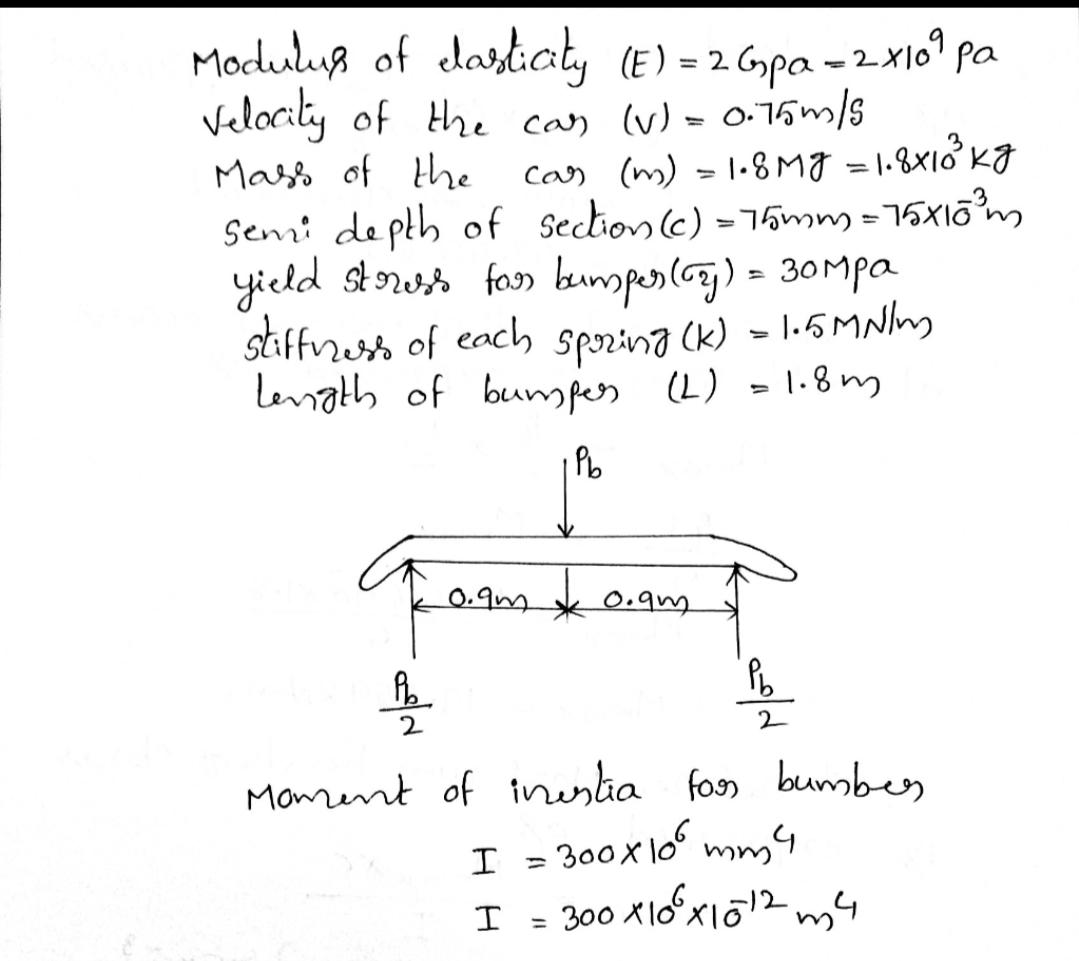 Modulus of elasticity (E) = 2 Gpa = 2×10⁹ pa
Velocity of the car (v) = 0.75m/s
Mass of the car (m) = 1.8 Mg = 1.8×10³ Kg
Semi depth of section (c) = 75mm = 75×10⁻³m
yield stress for bumper (σy) = 30 Mpa
stiffness of each spring (k) = 1.5 MN/m
Length of bumper (L) = 1.8 m
Pb
0.9m 0.9m
Pb/2 Pb/2
Moment of inertia for bumber
I = 300×10⁶ mm⁴
I = 300×10⁶×10⁻¹² m⁴